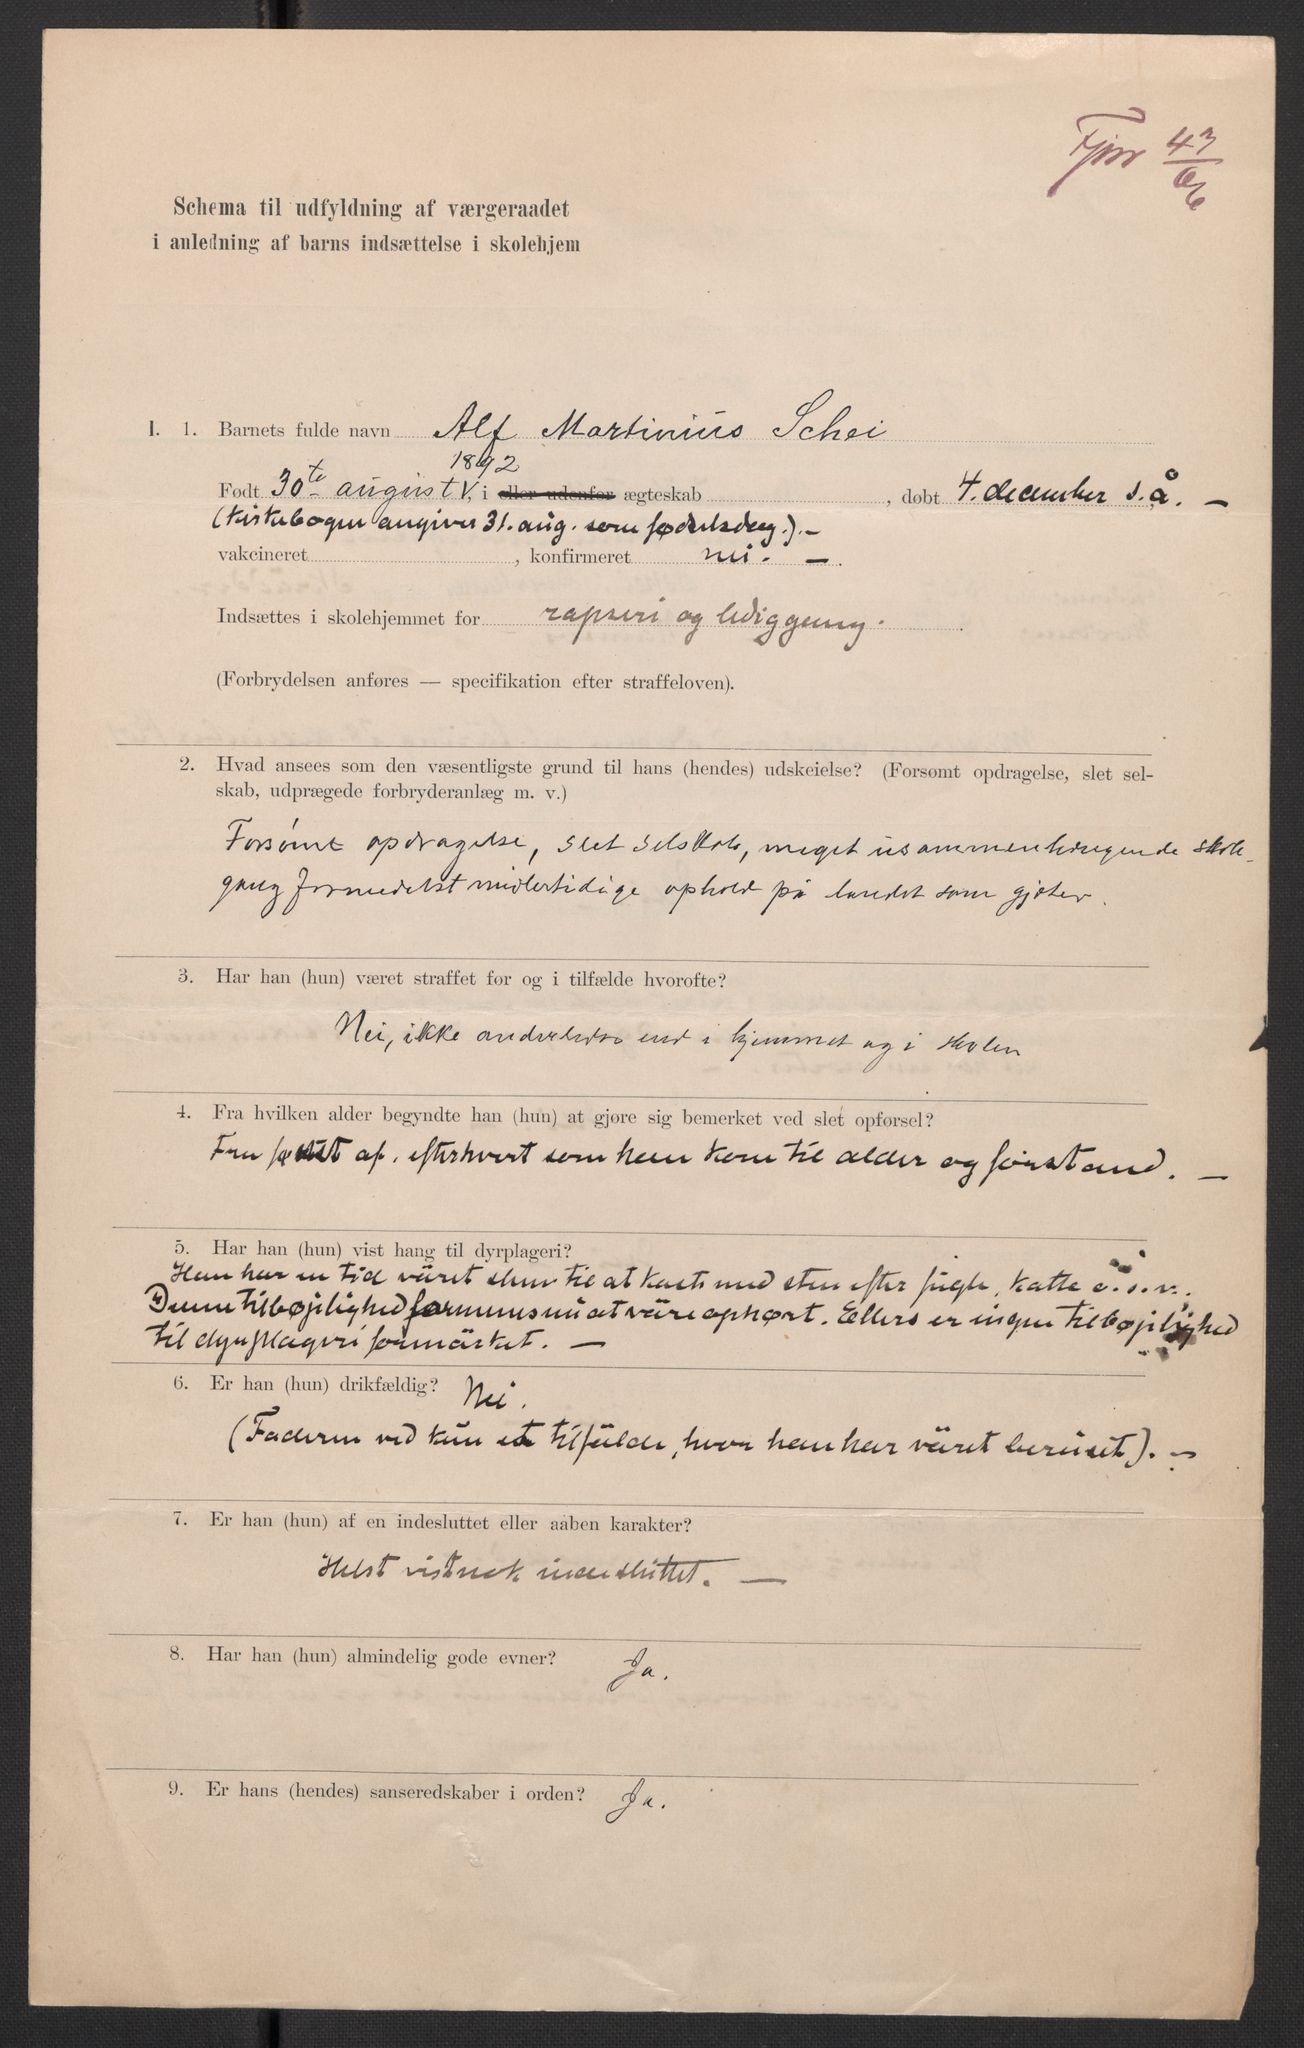 43
06
Schema til udfyldning af værgeraadet
i anledning af barns indsættelse i skolehjem
I. 1. Barnets fulde navn Alf Martinius Schei
1892
Født 30te august, i eller udenfor ægteskab , døbt 4. december s. å. —
(kirkebogen angiver 31. aug. som fødselsdag.). —
vakcineret , konfirmeret nei. —
Indsættes i skolehjemmet for rapseri og lediggang.
(Forbrydelsen anføres — specifikation efter straffeloven).
2. Hvad ansees som den væsentligste grund til hans (hendes) udskeielse? (Forsømt opdragelse, slet sel-
skab, udprægede forbryderanlæg m. v.)
Forsømt opdragelse, slet selskab, meget usammenhængende skole-
gang formedelst midlertidige ophold på landet som gjæter.
3. Har han (hun) været straffet før og i tilfælde hvorofte?
Nei, ikke anderledes end i hjemmet og i skolen
4. Fra hvilken alder begyndte han (hun) at gjøre sig bemerket ved slet opførsel?
Fra først af, efterhvert som han kom til alder og forstand. —
5. Har han (hun) vist hang til dyrplageri?
Han har en tid været slem til at kaste med sten efter fugle, katte o. s. v.
Denne tilbøjlighed formenes nu at være ophørt. Ellers er ingen tilbøjlighed
til dyrplageri formærket. —
6. Er han (hun) drikfældig? Nei.
(Faderen ved kun et tilfælde, hvor han har været beruset). —
7. Er han (hun) af en indesluttet eller aaben karakter?
Helst vistnok indesluttet. —
8. Har han (hun) almindelig gode evner? Ja.
9. Er hans (hendes) sanseredskaber i orden? Ja.